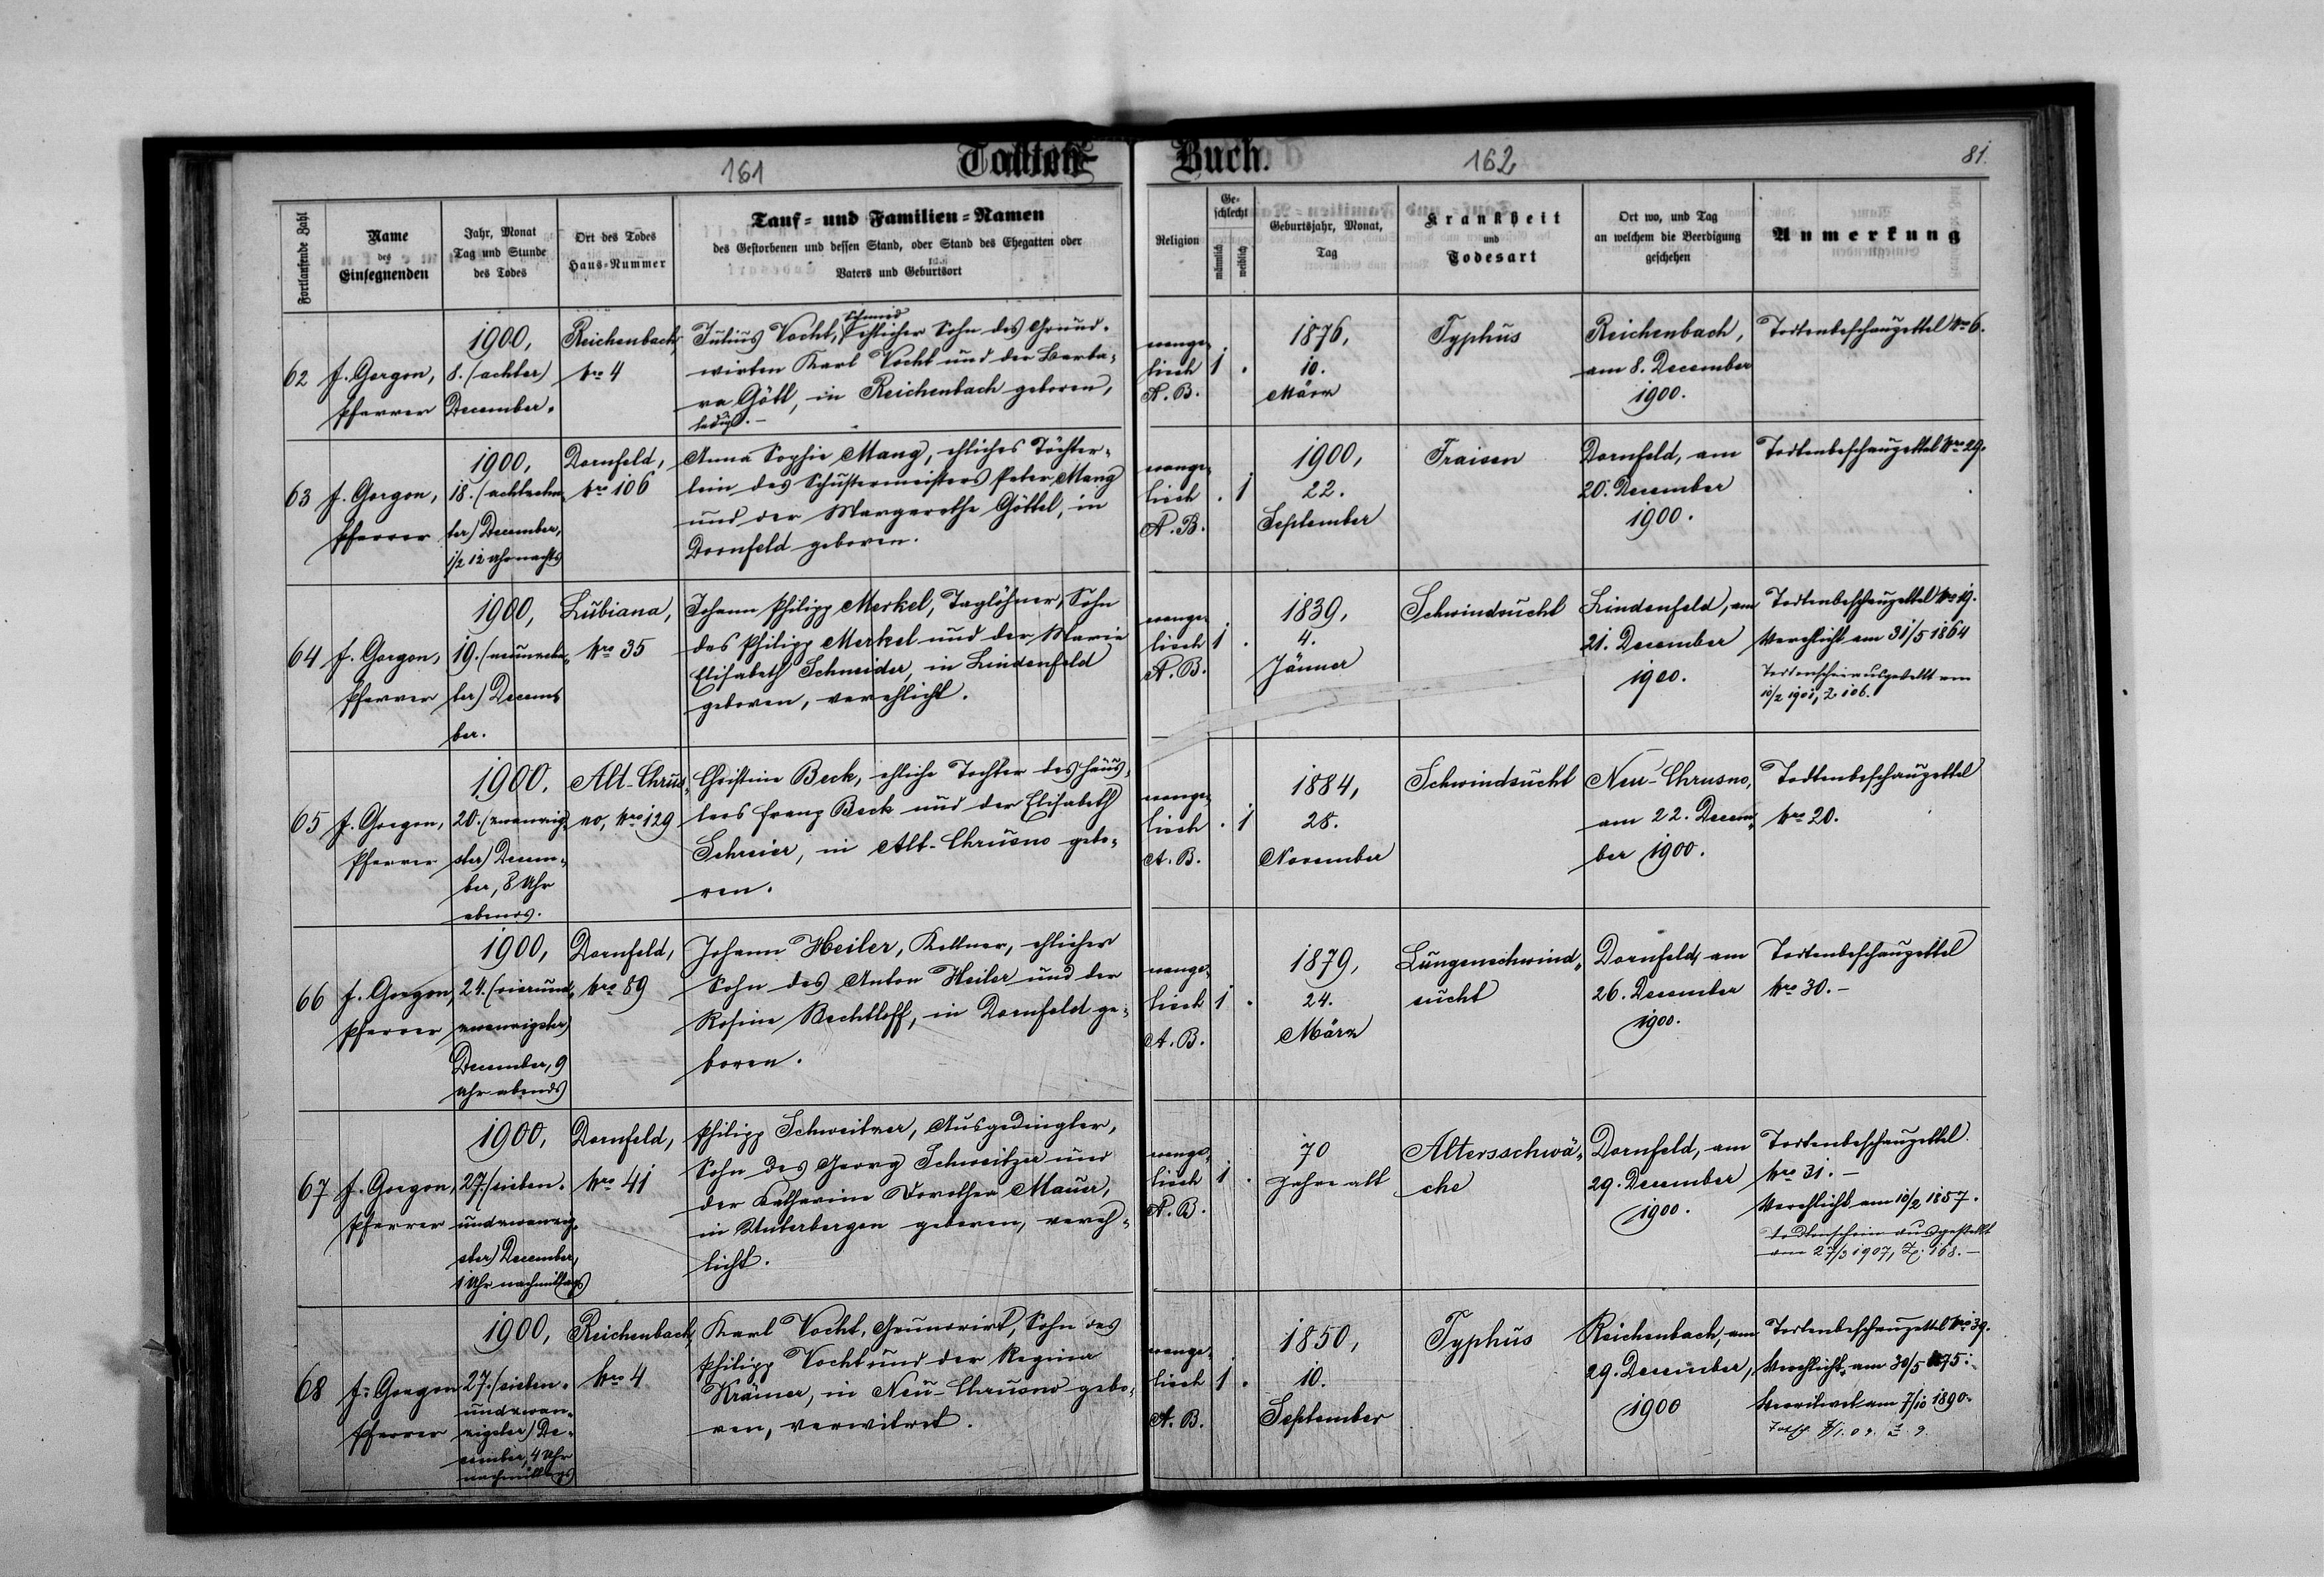 161
Todten-
Buch.
162
81.
Fortlaufende Zahl
Name
des
Einsegnenden
Jahr, Monat
Tag und Stunde
des Todes
Ort des Todes
Haus-Nummer
Tauf- und Familien-Namen
des Gestorbenen und dessen Stand, oder Stand des Ehegatten oder
Vaters und Geburtsort
Religion
Ge-
schlecht
männlich
weiblich
Geburtsjahr, Monat,
Tag
Krankheit
und
Todesart
Ort wo, und Tag
an welchem die Beerdigung
geschehen
Anmerkung
62
J. Gorgon,
Pfarrer
1900,
8. (achter)
December.
Reichenbach,
Nro 4
Schmied
Julius Vocht, ehlicher Sohn des Grund-
wirten Karl Vocht und der Barba-
ra Göttl, in Reichenbach geboren,
ledig. -
evange-
lisch
A. B.
1
1876,
10.
März
Typhus
Reichenbach,
am 8. December
1900.
Todtenbeschauzettel Nro 6.
63
J. Gorgon,
Pfarrer
1900,
18. (achtzehn-
ter) December,
1/2 12 Uhr nachts
Dornfeld,
Nro 106
Anna Sophie Mang, ehliches Töchter-
lein des Schustermeisters Peter Mang
und der Margarethe Göttel, in
Dornfeld geboren.
evange-
lisch
A. B.
1
1900,
22.
September
Fraisen
Dornfeld, am
20. December
1900.
Todtenbeschauzettel Nro 29.
64
J. Gorgon,
Pfarrer
1900,
19. (neunzehn-
ter) Decem-
ber.
Lubiana,
Nro 35
Johann Philipp Merkel, Taglöhner, Sohn
des Philipp Merkel und der Marie
Elisabeth Schneider, in Lindenfeld
geboren, verehlicht.
evange-
lisch
A. B.
1
1839,
4.
Jänner
Schwindsucht
Lindenfeld, am
21. December
1900.
Todtenbeschauzettel Nro 19.
Verehlicht am 31/5 1864
Todtenschein ausgestellt am
10/2 1901, Z. 106.
65
J. Gorgon,
Pfarrer
1900.
20. (zwanzig-
ster) Decem-
ber, 8 Uhr
abends.
Alt-Chrus-
no, Nro 129
Christine Beck, ehliche Tochter des Häus-
lers Franz Beck und der Elisabeth
Schreier, in Alt-Chrusno gebo-
ren.
evange-
lisch
A. B.
1
1884,
28.
November
Schwindsucht
Neu-Chrusno,
am 22. Decem-
ber 1900.
Todtenbeschauzettel
Nro 20.
66
J. Gorgon,
Pfarrer
1900,
24. (vierund-
zwanzigster)
December, 9
Uhr abends
Dornfeld,
Nro 89
Johann Heiler, Kellner, ehlicher
Sohn des Anton Heiler und der
Rosine Bechtloff, in Dornfeld ge-
boren.
evange-
lisch
A. B.
1
1879,
24.
März
Lungenschwind-
sucht
Dornfeld, am
26. December
1900.
Todtenbeschauzettel
Nro 30. -
67
J. Gorgon,
Pfarrer
1900,
27. (sieben-
undzwanzig-
ster) December,
1 Uhr nachmittags
Dornfeld,
Nro 41
Philipp Schweitzer, Ausgedingler,
Sohn des Georg Schweitzer und
der Katharine Dorothea Mauer,
in Unterbergen geboren, vereh-
licht.
evange-
lisch
A. B.
1
70
Jahre alt
Altersschwä-
che
Dornfeld, am
29. December
1900.
Todtenbeschauzettel
Nro 31. -
Verehlicht am 10/2 1857.
Todtenschein ausgestellt
am 27/3 1907, Z. 168. -
68
J. Gorgon
Pfarrer
1900,
27. (sieben-
undzwan-
zigster) De-
cember, 4 Uhr
nachmittags
Reichenbach,
Nro 4
Karl Vocht, Grundwirt, Sohn des
Philipp Vocht und der Regina
Krämer, in Neu-Chrusno gebo-
ren, verwitwet.
evange-
lisch
A. B.
1
1850,
10.
September
Typhus
Reichenbach, am
29. December,
1900
Todtenbeschauzettel Nro 39.
Verehlicht am 30/5 1875.
Verwitwet am 7/10 1890.